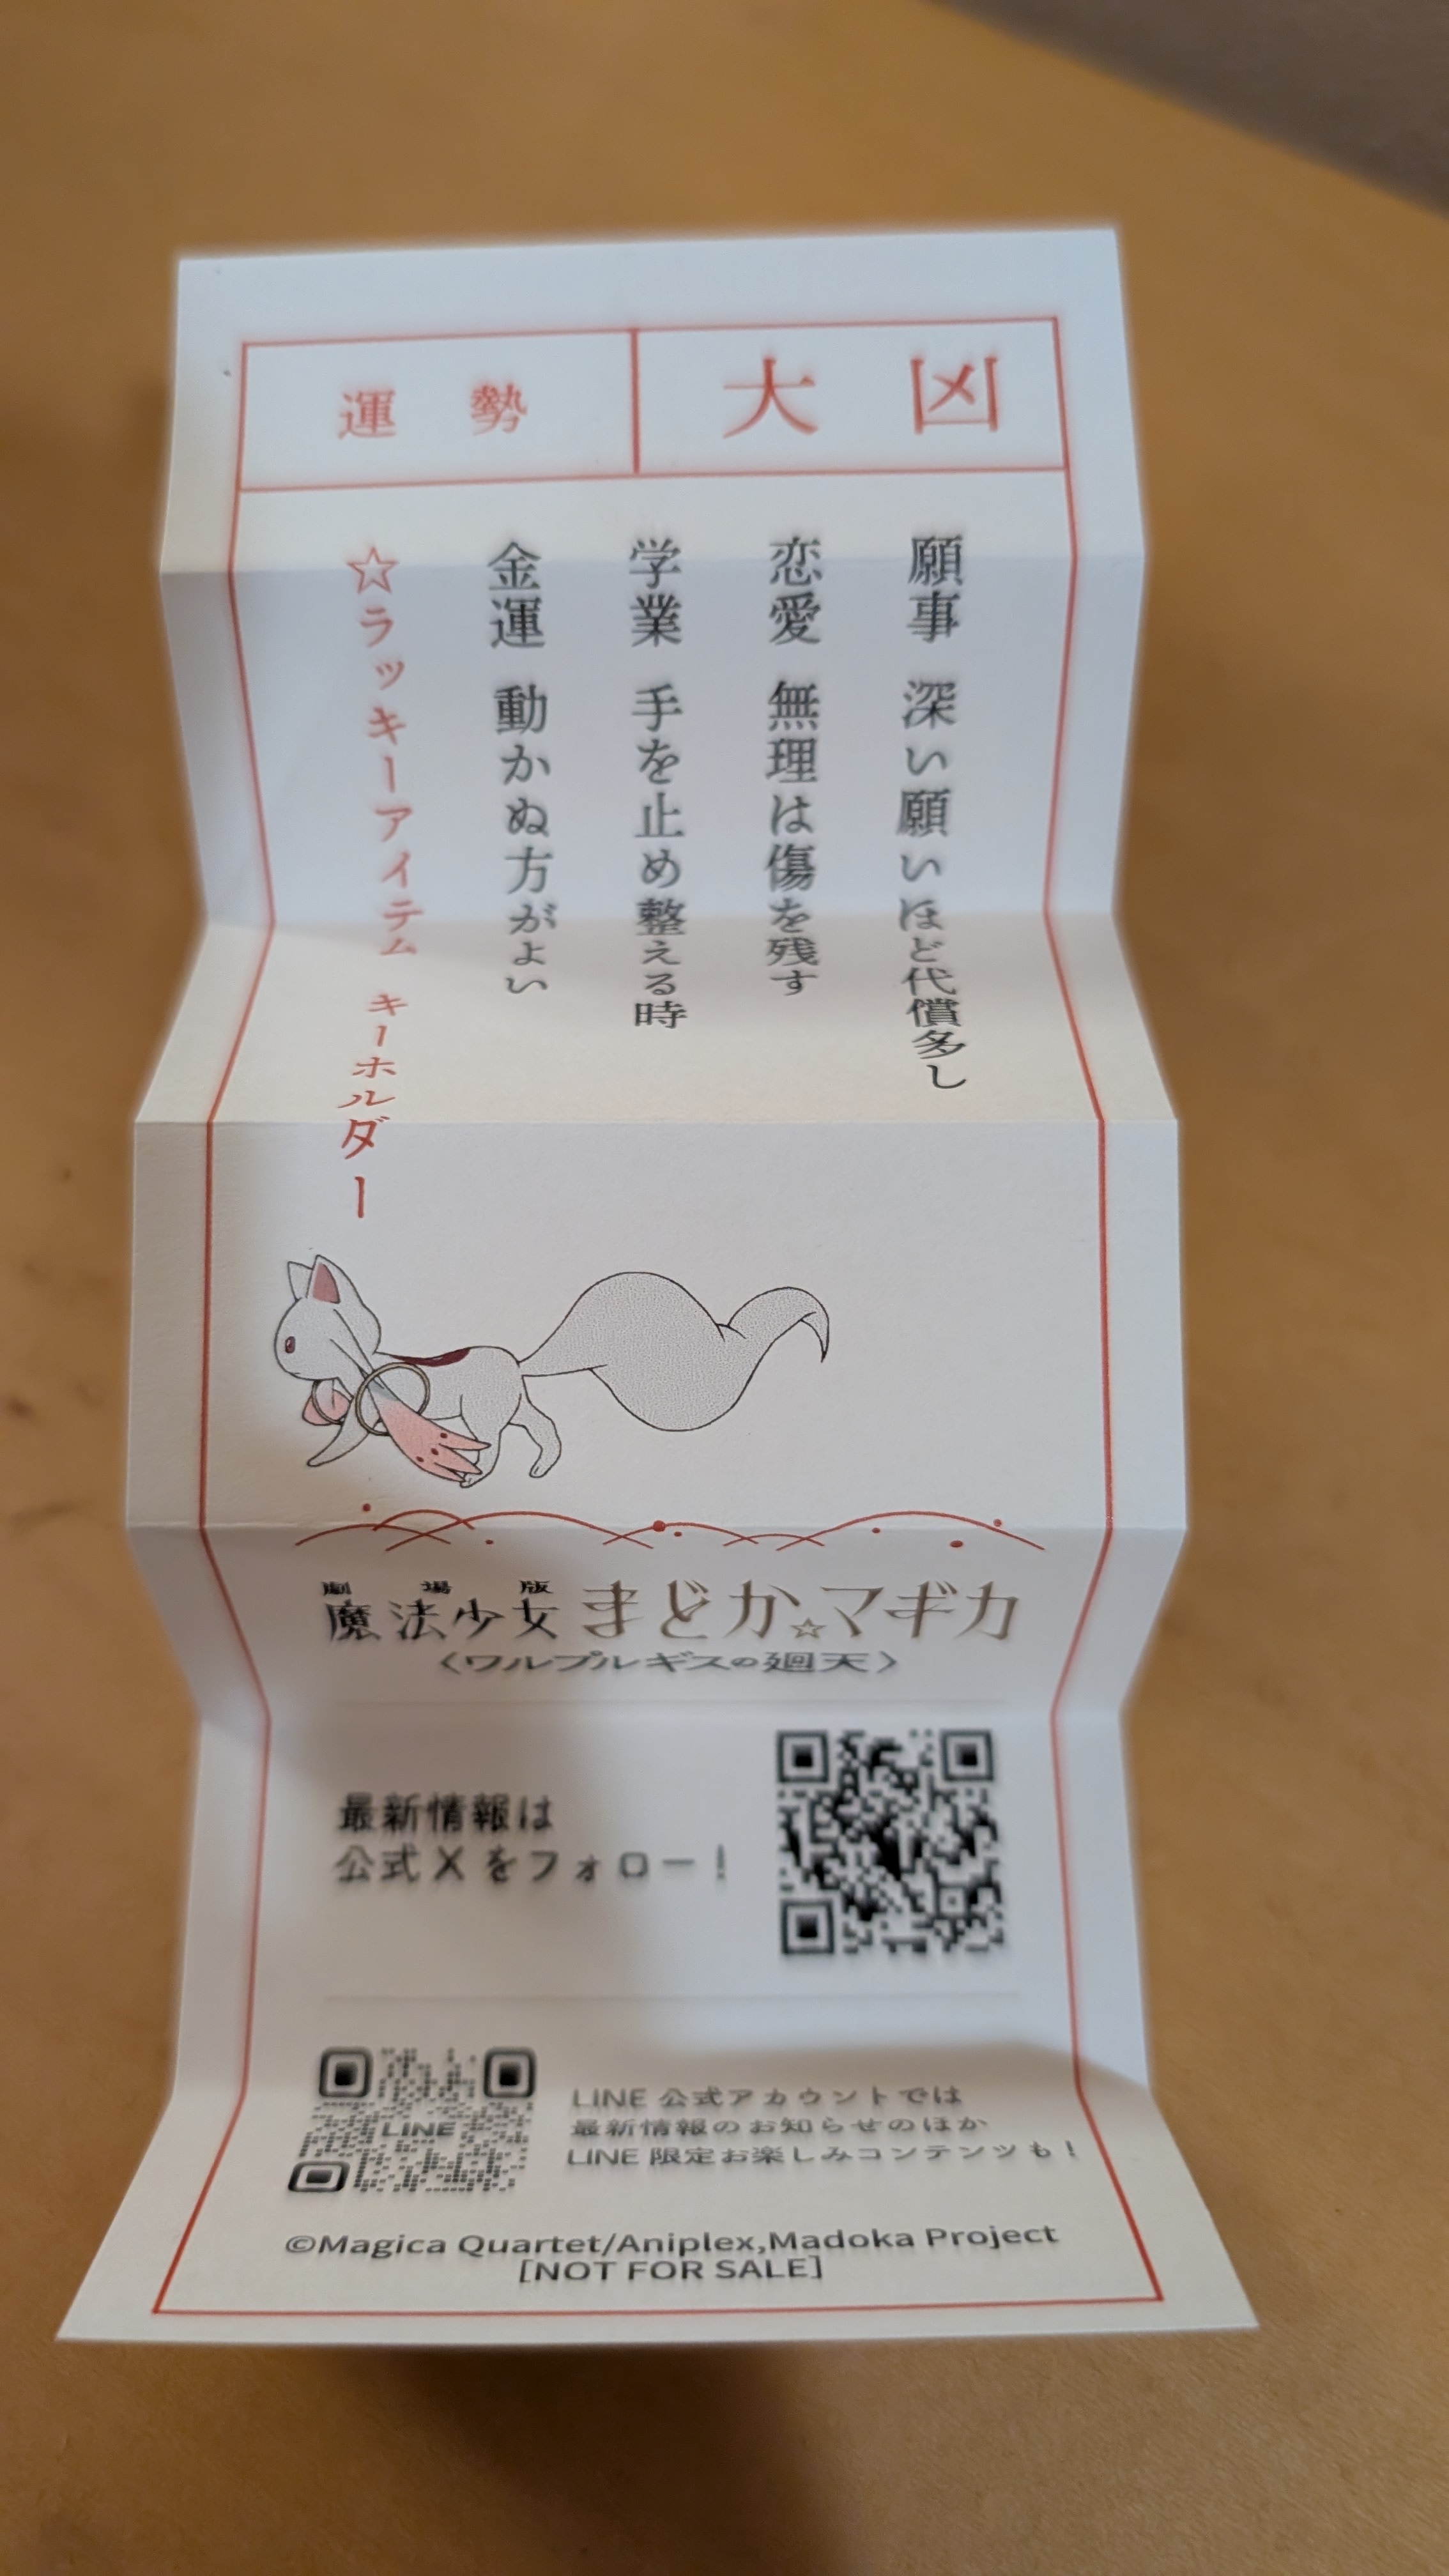 運勢 大凶
願事 深い願いほど代償多し
恋愛 無理は傷を残す
学業 手を止め整える時
金運 動かぬ方がよい
☆ラッキーアイテム キーホルダー
劇場版
魔法少女まどか☆マギカ
〈ワルプルギスの廻天〉
最新情報は
公式Xをフォロー！
LINE
LINE 公式アカウントでは
最新情報のお知らせのほか
LINE 限定お楽しみコンテンツも！
©Magica Quartet/Aniplex,Madoka Project
[NOT FOR SALE]